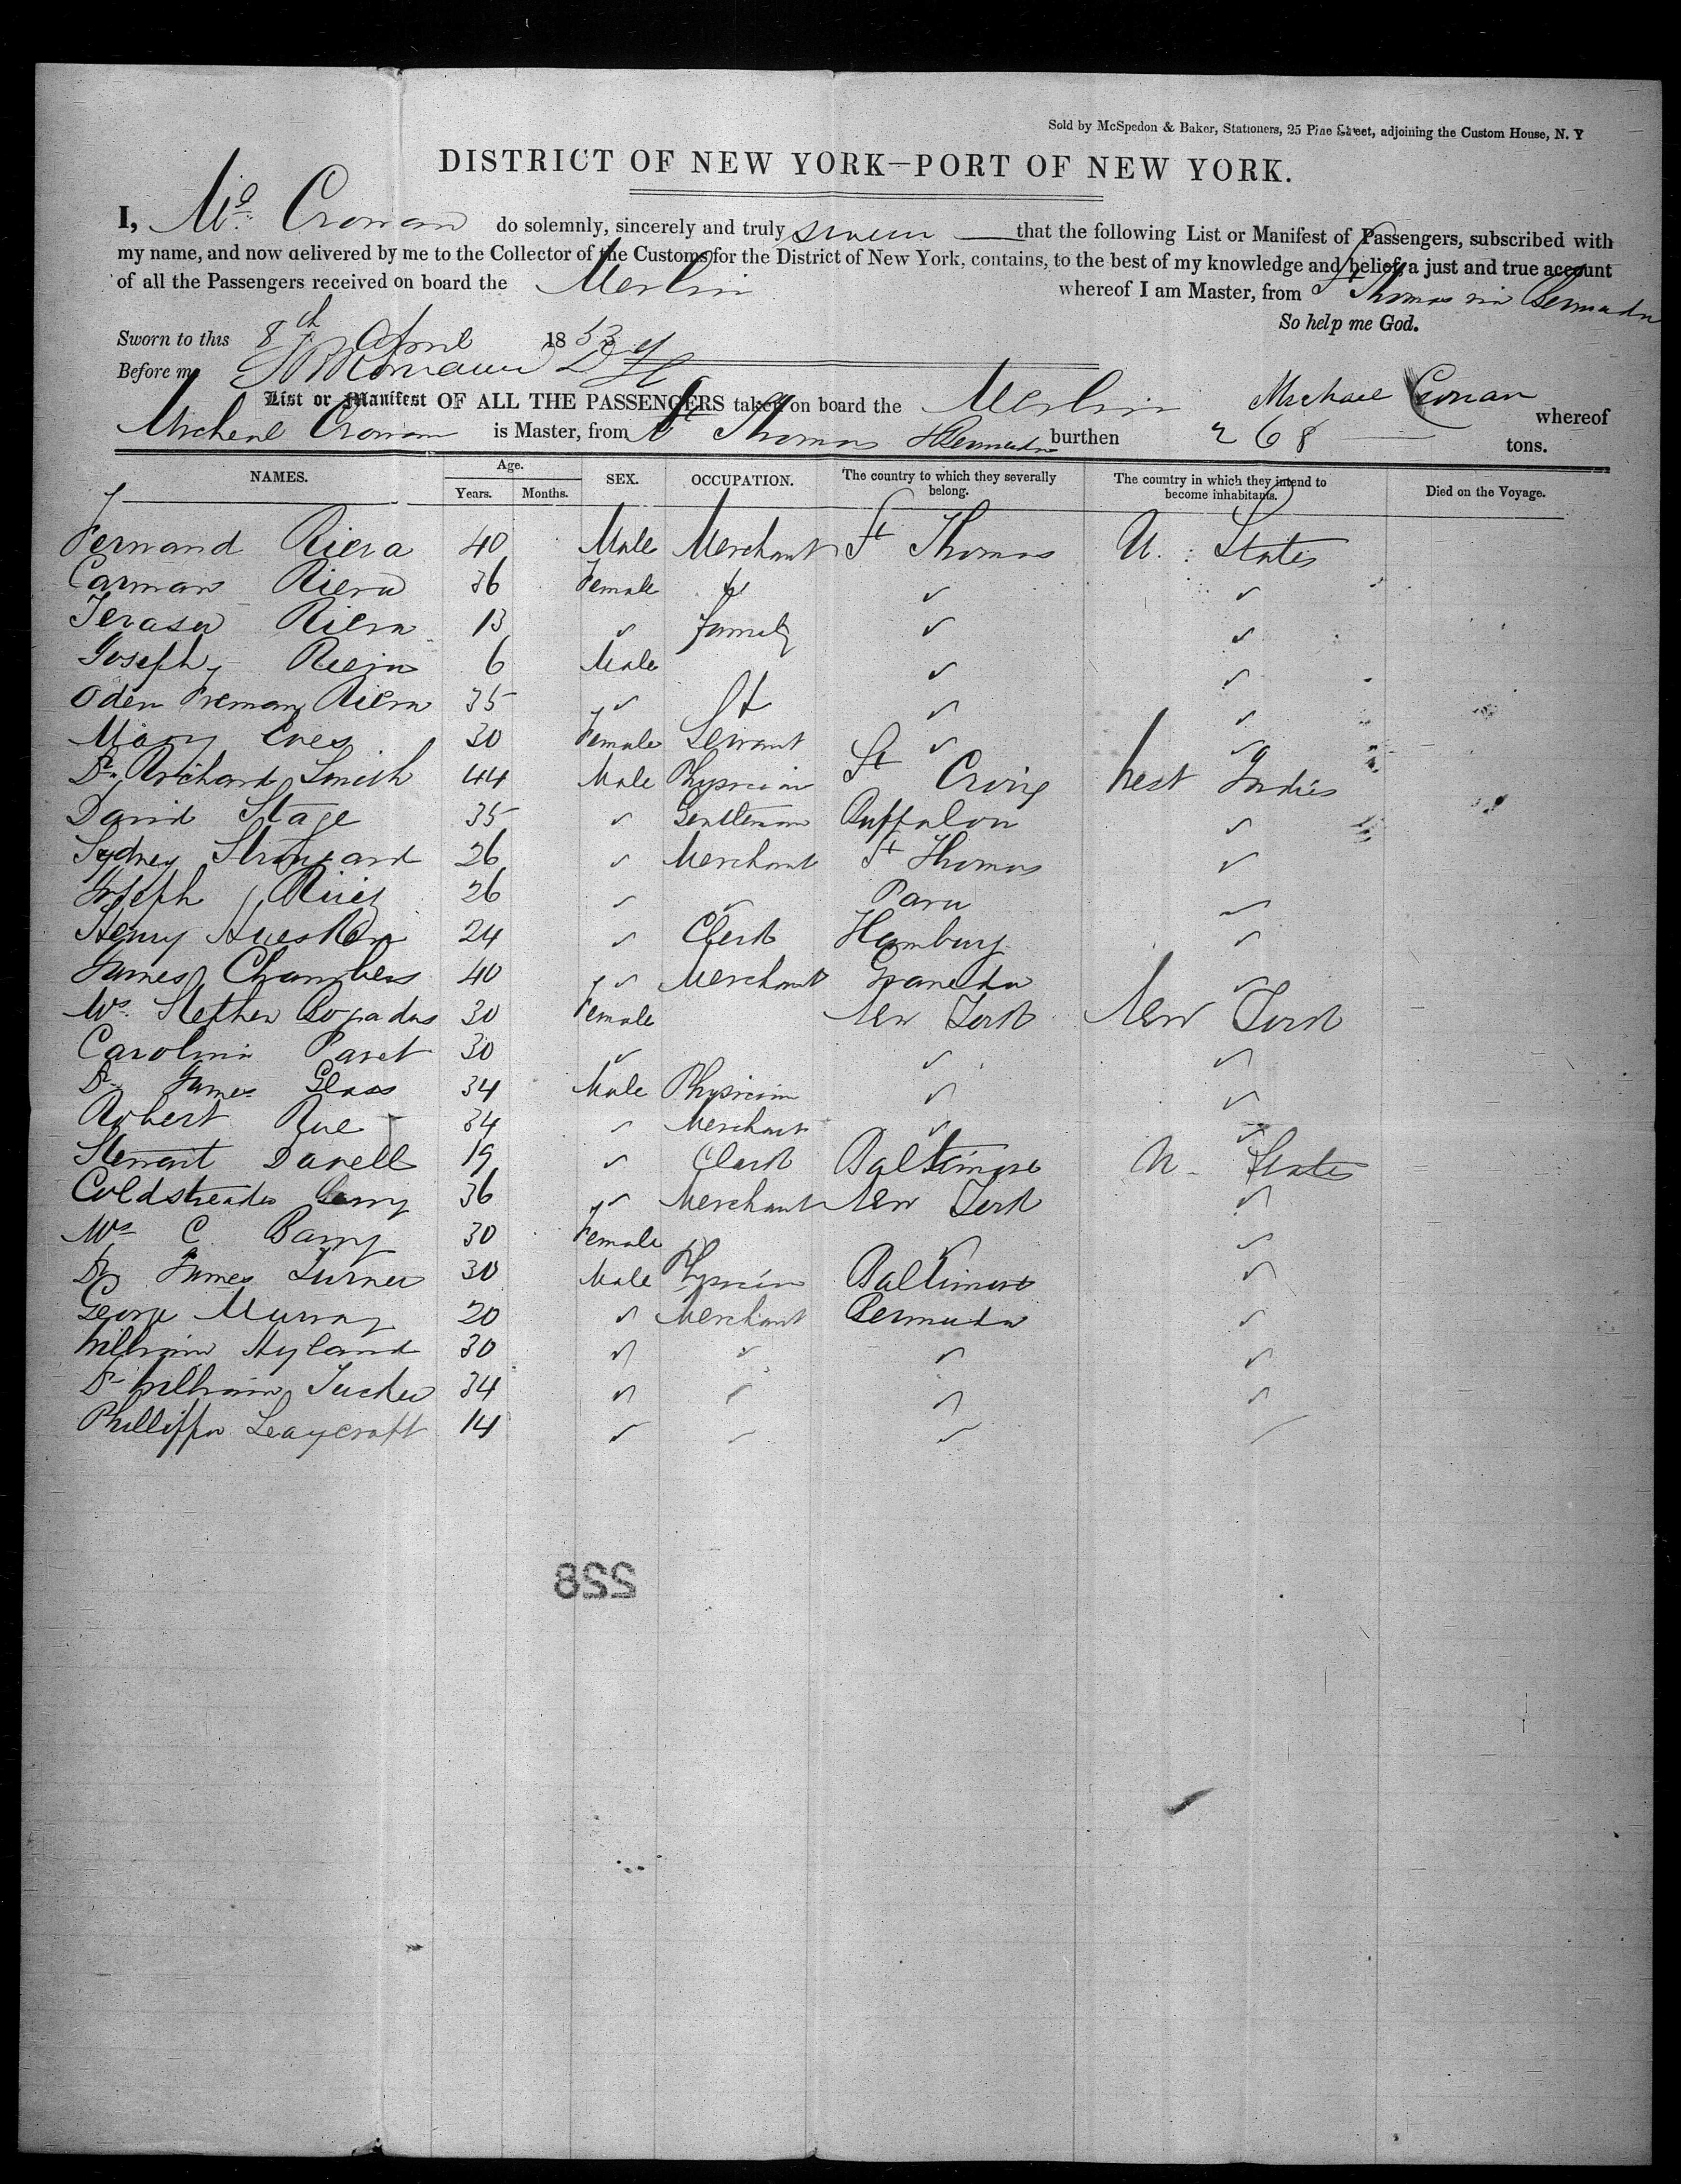 Sold by McSpedon & Baker, Stationers, 25 Pine Street, adjoining the Custom House, N. Y
DISTRICT OF NEW YORK—PORT OF NEW YORK.
I, Ml. Cronan do solemnly, sincerely and truly swear that the following List or Manifest of Passengers, subscribed with
my name, and now delivered by me to the Collector of the Customs for the District of New York, contains, to the best of my knowledge and belief, a just and true account
of all the Passengers received on board the Merlin whereof I am Master, from St Thomas via Bermuda
So help me God.
Sworn to this 8th April 1853
Before me
Michael Cronan
List or Manifest OF ALL THE PASSENGERS taken on board the Merlin whereof
Micheal Cronan is Master, from St Thomas & Bermuda burthen 268 tons.
NAMES. Age. Years. Months. SEX. OCCUPATION. The country to which they severally belong. The country in which they intend to become inhabitants. Died on the Voyage.
Fernand Riera 40 Male Merchant St Thomas U. States
Carman Riera 36 Female ✓ ✓
Terasa Riera 13 ✓ Family ✓ ✓
Joseph Riera 6 Male ✓ ✓
Oden Riera 35 ✓ ✓ ✓
Mary 30 Female Servant ✓ ✓
Dr. Richard Smith 44 Male Physician St Croix West Indies
David Stage 35 ✓ Gentleman Buffalon ✓
Sydney 26 ✓ Merchant St Thomas ✓
Joseph 26 ✓ ✓ Para ✓
Henry 24 ✓ Clerk Hamburg ✓
James Chambers 40 ✓ Merchant Grenada ✓
Ms. Stephen 30 Female New York New York
Carolina Paret 30 ✓ ✓ ✓
Dr James Glass 34 Male Physician ✓ ✓
Robert Rue 34 ✓ Merchant ✓ ✓
Stewart Darell 19 ✓ Clerk Baltimore U. States
36 ✓ Merchant New York ✓
Ms C. Barry 30 Female ✓ ✓
Dr James Turner 30 Male Physician Baltimore ✓
George Murray 20 ✓ Merchant Bermuda ✓
William Hyland 30 ✓ ✓ ✓ ✓
Dr William Tucker 34 ✓ ✓ ✓ ✓
Phillippa Leaycraft 14 ✓ ✓ ✓ ✓
228